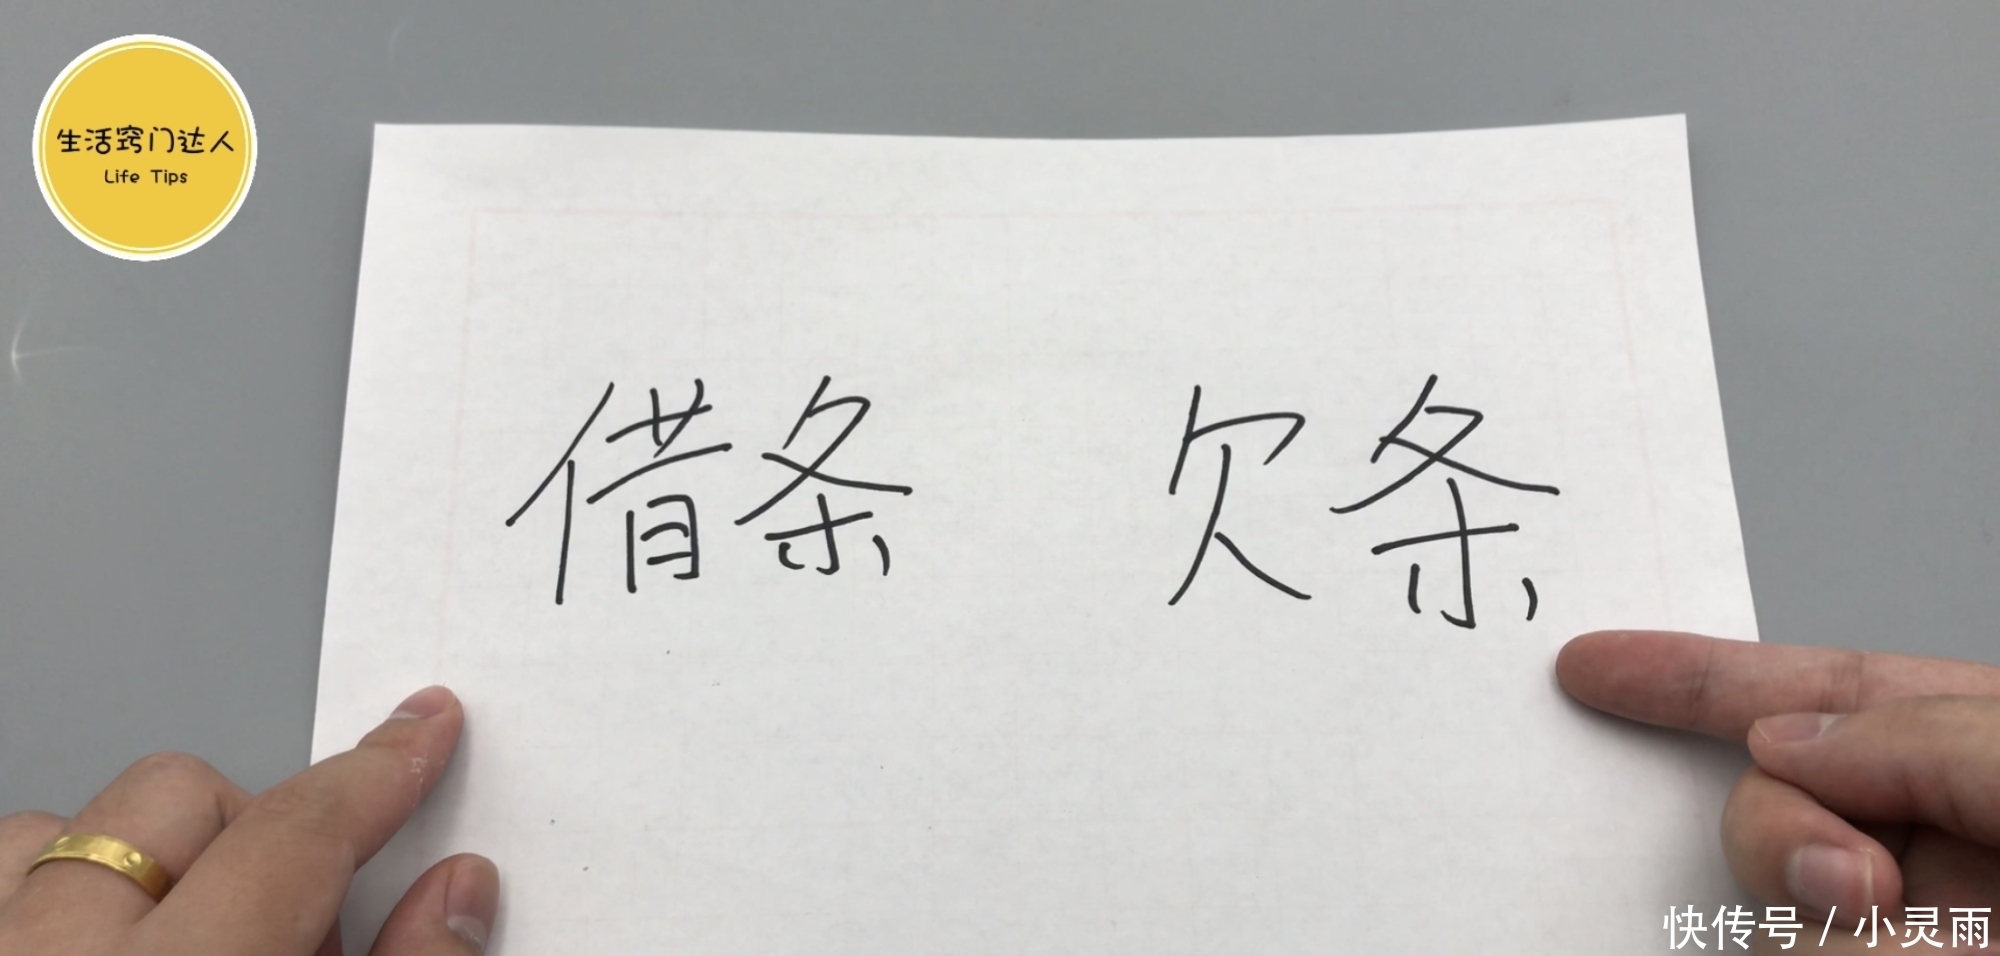 生活窍门达人
Life Tips
借条 欠条
快传号 / 小灵雨